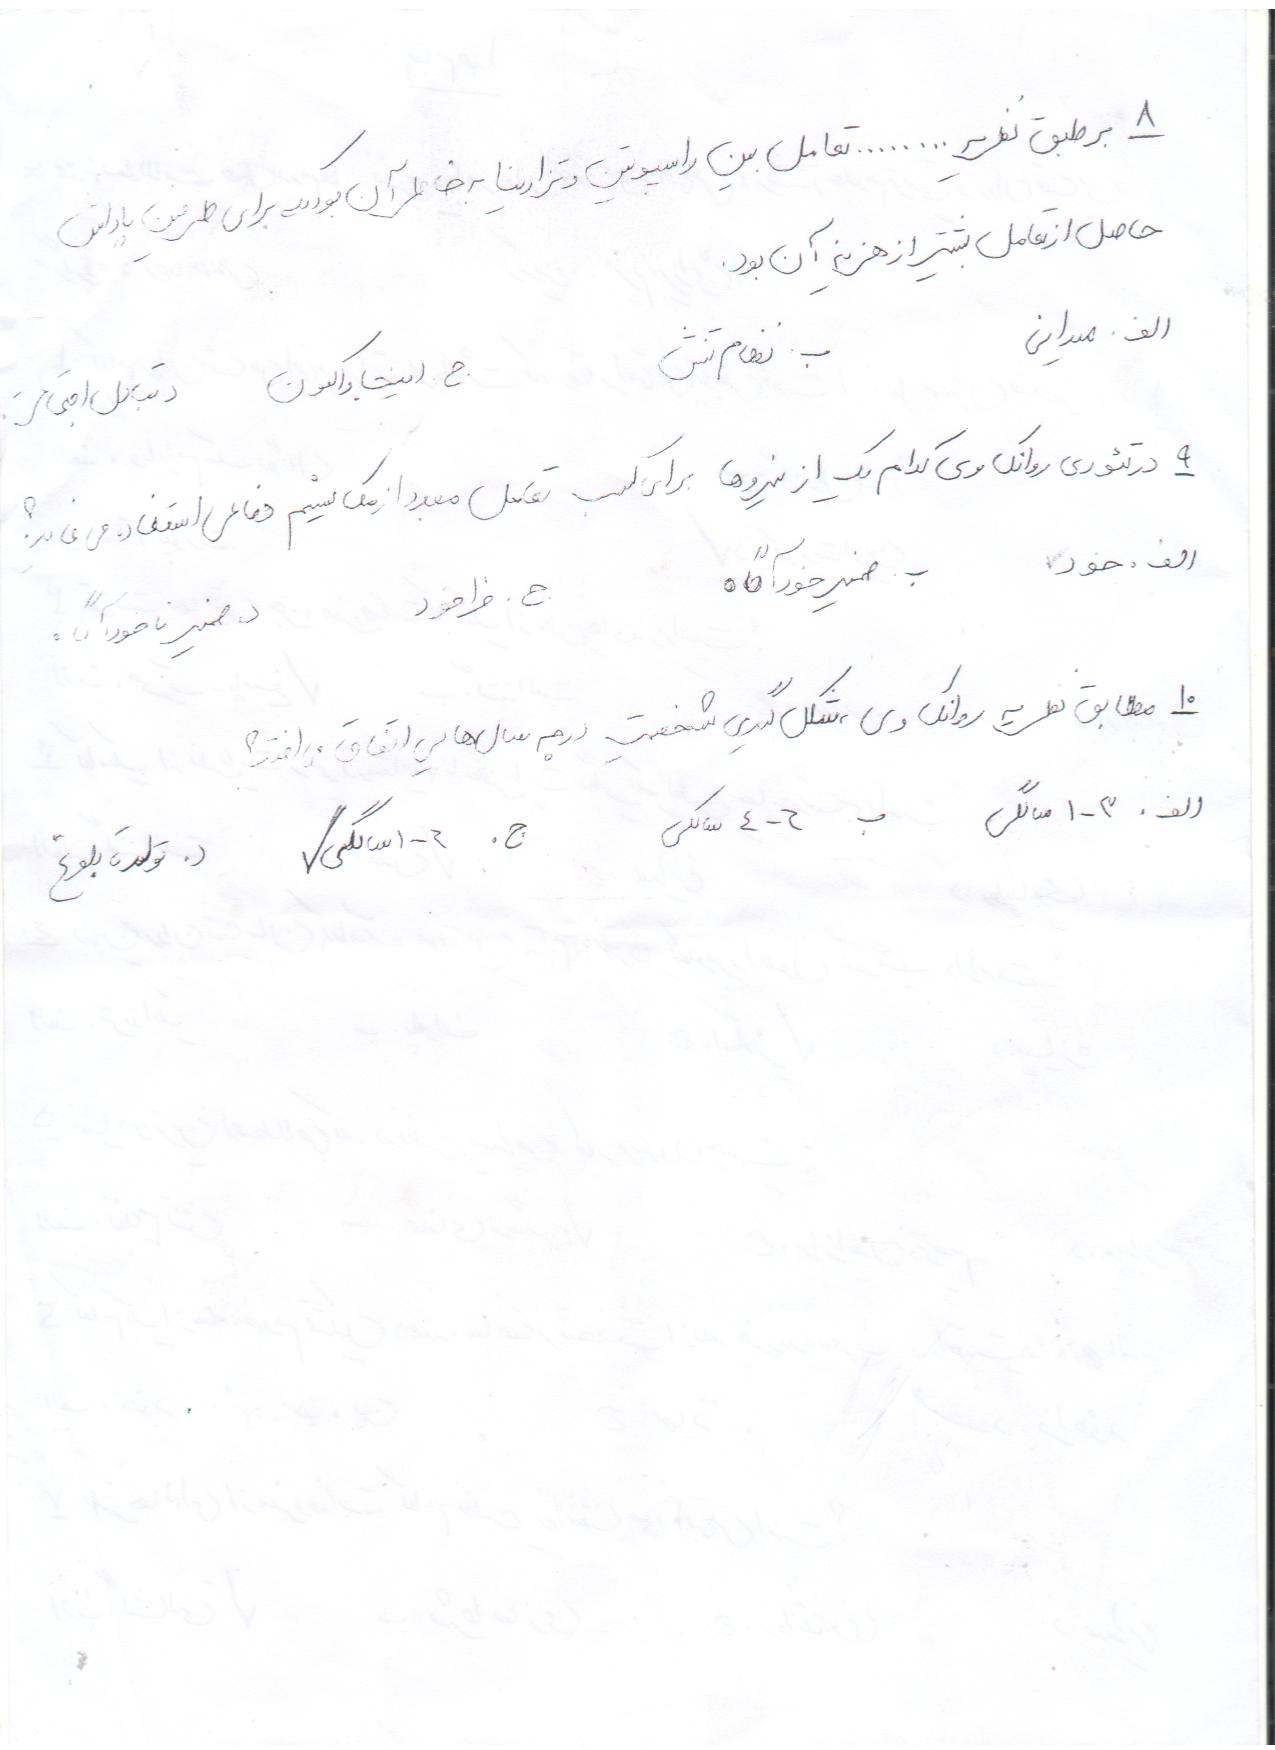 ۸ بر طبق نظریه ........ تعامل بین راسپوتین و تزارینا به خاطر آن بود که برای طرفین پاداش
حاصل از تعامل بیشتر از هزینه آن بود.
الف. میدانی ب. نظام تنش ج. اینجا و اکنون د تبادل اجتماعی
۹ در تئوری روانکاوی کدام یک از نیروها برای کسب تعامل مجدد از مکانیسم دفاعی استفاده می نماید؟
الف. خود ✓ ب. ضمیر خودآگاه ج. فراخود د. ضمیر ناخودآگاه.
۱۰ مطابق نظریه روانکاوی، شکل گیری شخصیت در چه سال‌هایی اتفاق می افتد؟
الف. ۳-۱ سالگی ب ٦-٤ سالگی ج. ٦-۱ سالگی ✓ د. تولد تا بلوغ